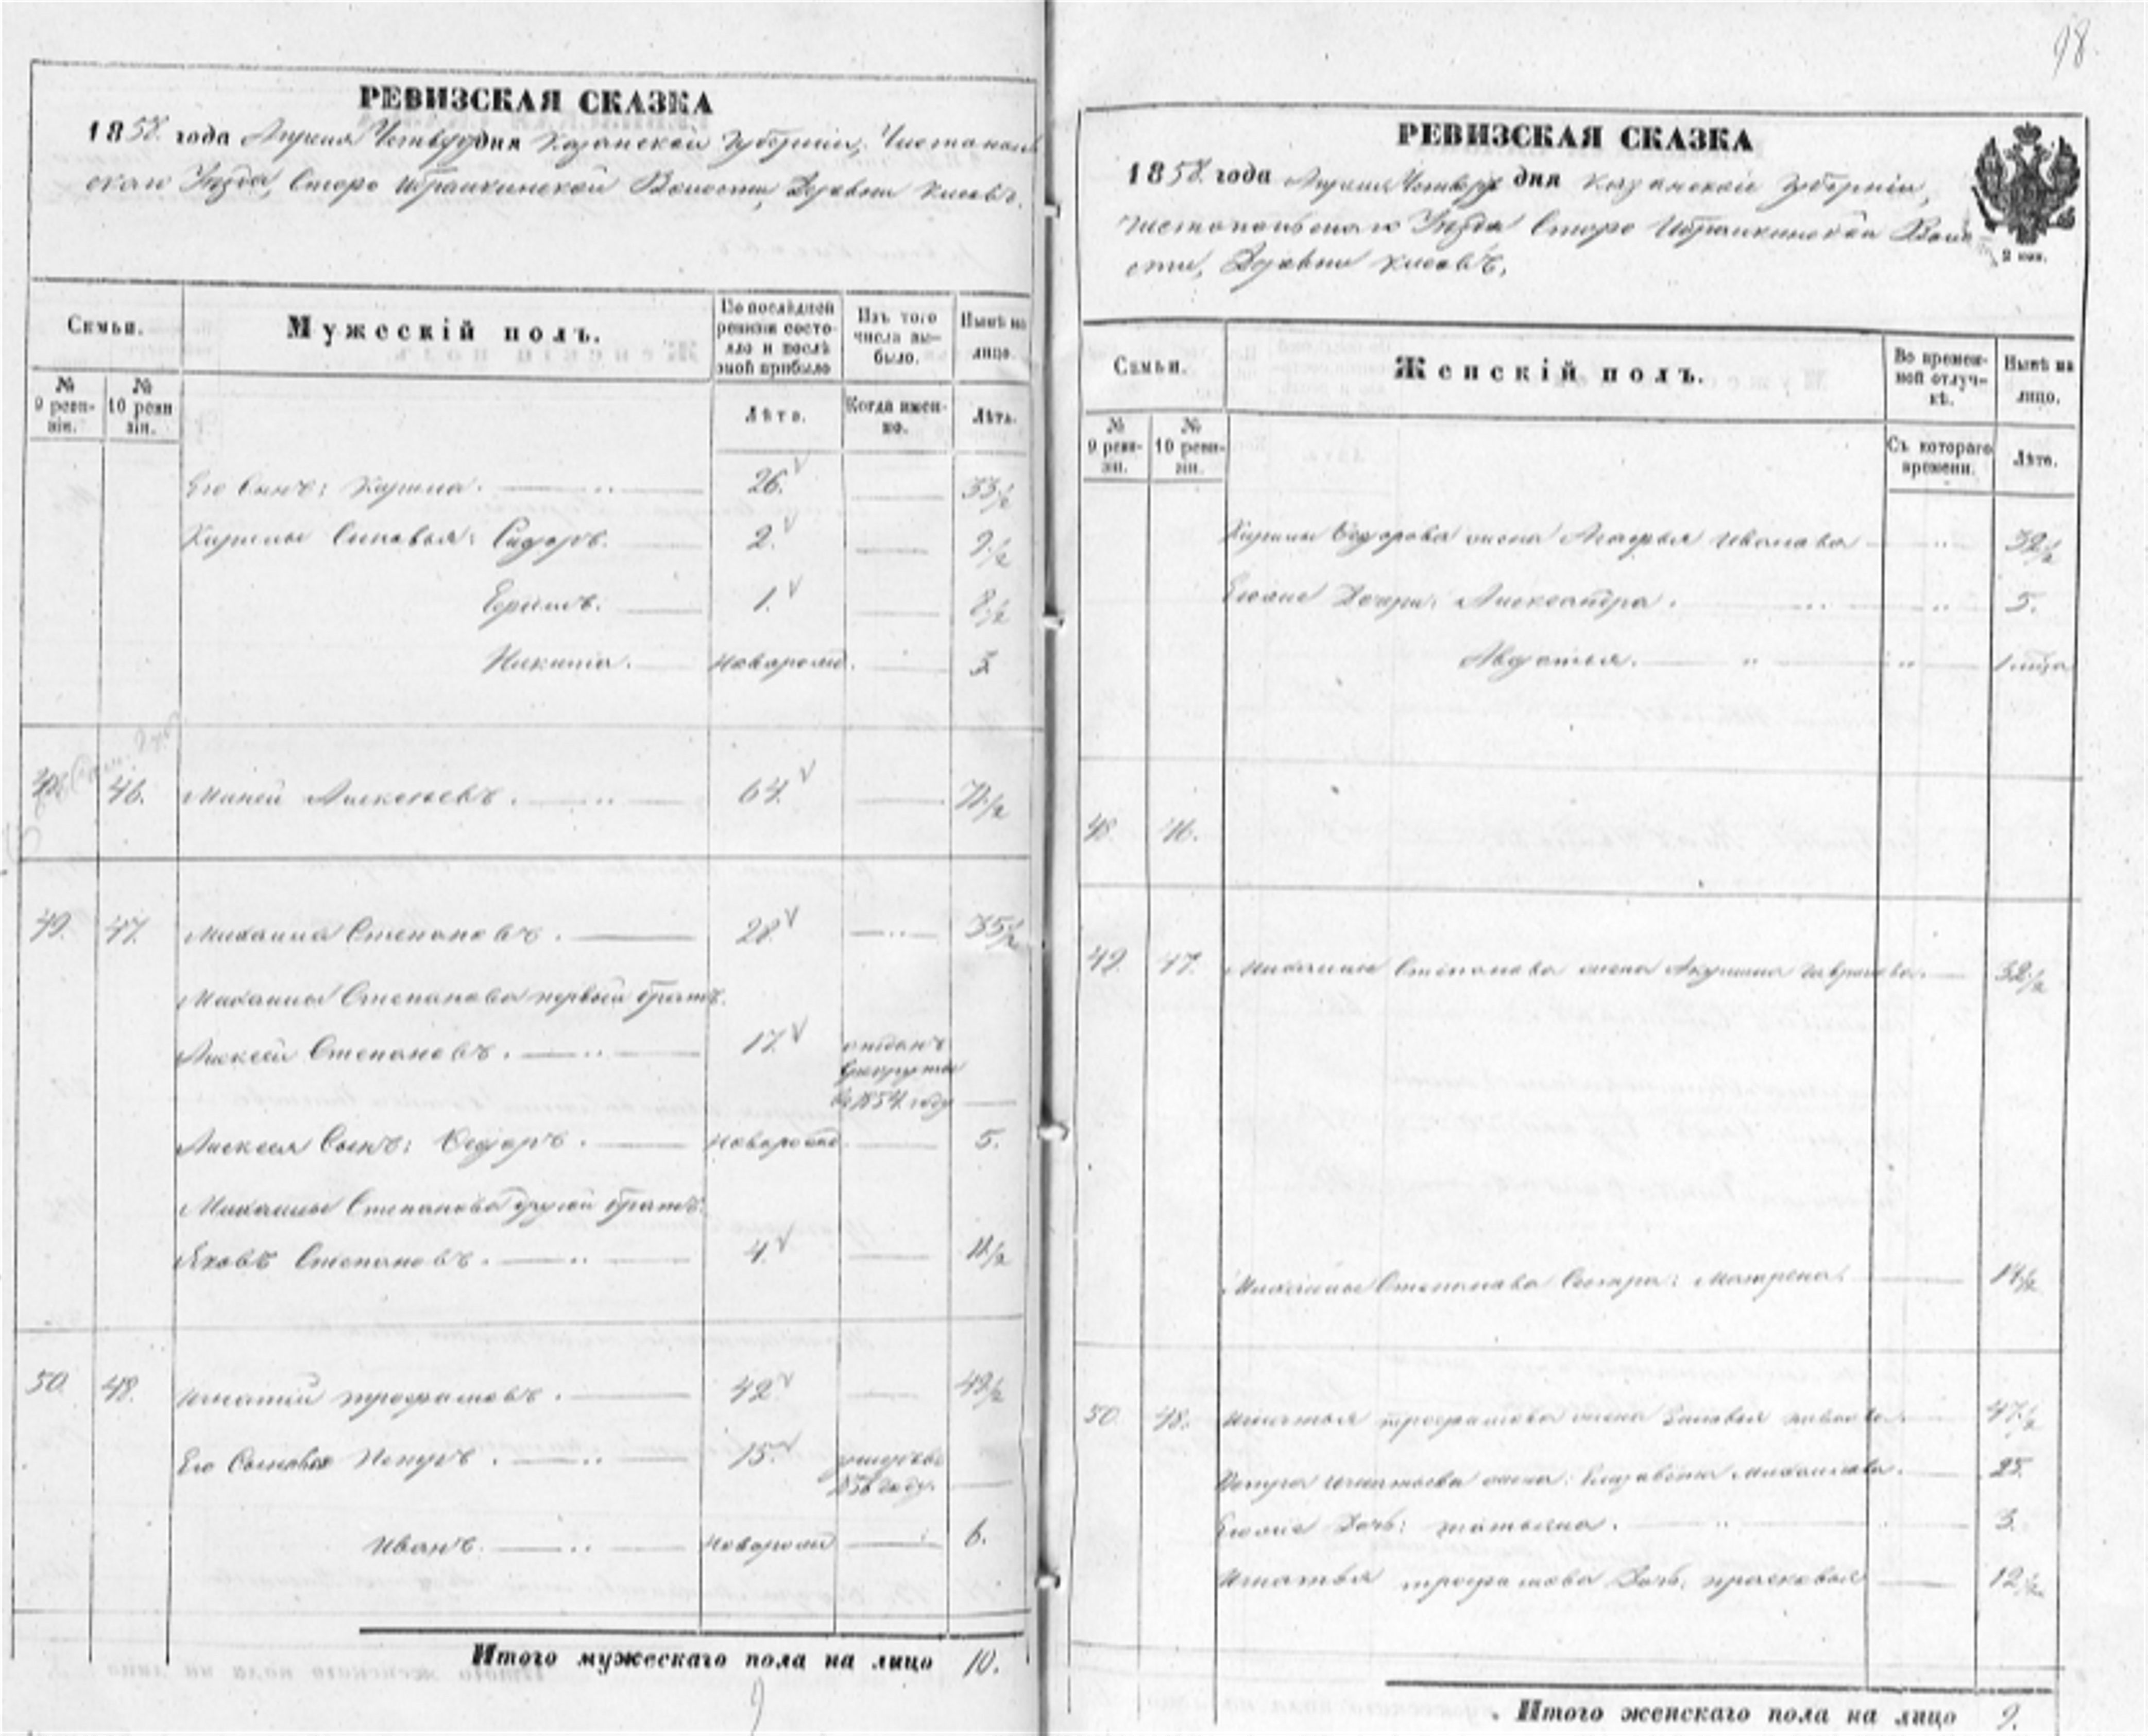 98.
РЕВИЗСКАЯ СКАЗКА
1858. года Апреля дня Казанской Губернии, Чистополь
скаго Уезда, Старо Ибрайкинской Волости, Деревни Кизовъ.
Семьи.
Мужескій полъ.
По послѣдней ревизіи состояло и послѣ оной прибыло
Изъ того числа выбыло.
Нынѣ на лицо.
№ 9 ревизіи.
№ 10 ревизіи.
Лѣта.
Когда именно.
Лѣта.
Его Сынъ: Кирила. 26. 33½
Кирилы Сыновья: Сидоръ. 2. 9½
Ефимъ. 1. 8½
Никита. новорожд. 3.
48. 46. Миней Алексеевъ. 64. 71½
49. 47. Михаила Степановъ. 28. 35½
Михаилы Степанова первый братъ.
Алексей Степановъ. 17. отданъ в рекруты въ 1854 году
Алексея Сынъ: Федоръ. новорожд. 5.
Михаилы Степанова другой братъ:
Яковъ Степановъ. 4. 11½
50. 48. Игнатий Трофимовъ. 42. 49½
Его Сыновья Петръ. 15. умеръ въ 1856 году.
Иванъ. новорожд 6.
Итого мужескаго пола на лицо 10.
9
РЕВИЗСКАЯ СКАЗКА
1858. года Апреля дня Казанской Губернии,
Чистопольскаго Уезда Старо Ибрайкинской Воло
сти, Деревни Кизовъ.
2 коп.
Семьи.
Женскій полъ.
Во временной отлучкѣ.
Нынѣ на лицо.
№ 9 ревизіи.
№ 10 ревизіи.
Съ котораго времени.
Лѣта.
Кирилы Федорова жена Агафья Иванова 32½
Ево же Дочери: Александра. 5.
Авдотья. 1 мѣся
48. 46.
49. 47. Михаилы Степанова жена Акулина Гаврилова. 32½
Михаилы Степанова Сестра: Матрена. 14½
50. 48. Игнатья Трофимова жена 47½
Петра Игнатьева жена: Елизавета Михайлова. 25.
Ево же Дочь: Татьяна. 3.
Игнатья Трофимова Дочь: Прасковья 12½
Итого женскаго пола на лицо 9.